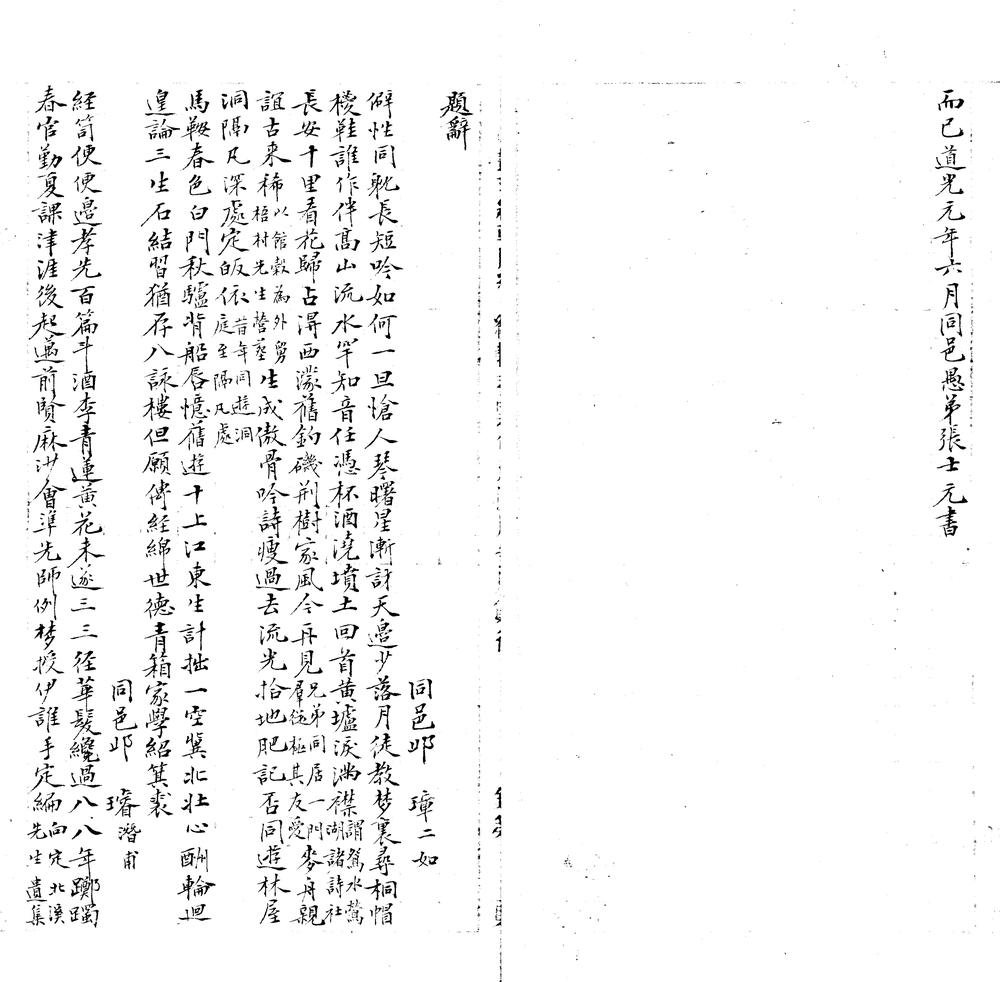 而已道光元年六月同邑愚弟張士元書
題辭
同邑邱　璋二如
僻性同躭長短吟如何一旦愴人琴曙星漸訝天邉少落月徒教梦裏尋桐帽
椶鞋誰作伴高山流水罕知音任憑杯酒澆墳土回首黄壚淚滿襟謂鴛水鶯湖諸詩社
長安十里看花歸占得西濛舊釣磯荆樹家風今再見兄弟同居一門羣從極其友愛麥舟親
誼古來稀以館穀為外舅梧村先生營葬生成傲骨吟詩瘦過去流光拾地肥記否同遊林屋
洞隔凡深處定皈依昔年同遊洞庭至隔凡處
馬鞍春色白門秋驢背船唇憶舊遊十上江東生計拙一空冀北壯心酬輪迴
遑論三生石結習猶存八詠樓但願傳経綿世德青箱家學紹箕裘
同邑邱　璿潛甫
経笥便便邉孝先百篇斗酒李青蓮黄花未遂三三径華髮纔過八八年躑躅
春官勤夏課津涯後起邁前賢麻沙會準先師例梦授伊誰手定編向定北溪先生遺集